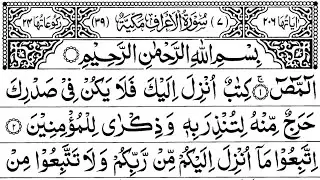 اٰيَاتُهَا ٢٠٦ (٧) سُوْرَةُ الْاَعْرَافِ مَكِّيَّةٌ (٣٩) رُكُوْعَاتُهَا ٢٤
بِسْمِ اللّٰهِ الرَّحْمٰنِ الرَّحِيْمِ
الٓمّٓصٓ ۝١ كِتٰبٌ اُنْزِلَ اِلَيْكَ فَلَا يَكُنْ فِيْ صَدْرِكَ
حَرَجٌ مِّنْهُ لِتُنْذِرَ بِهٖ وَذِكْرٰى لِلْمُؤْمِنِيْنَ ۝٢
اِتَّبِعُوْا مَآ اُنْزِلَ اِلَيْكُمْ مِّنْ رَّبِّكُمْ وَلَا تَتَّبِعُوْا مِنْ